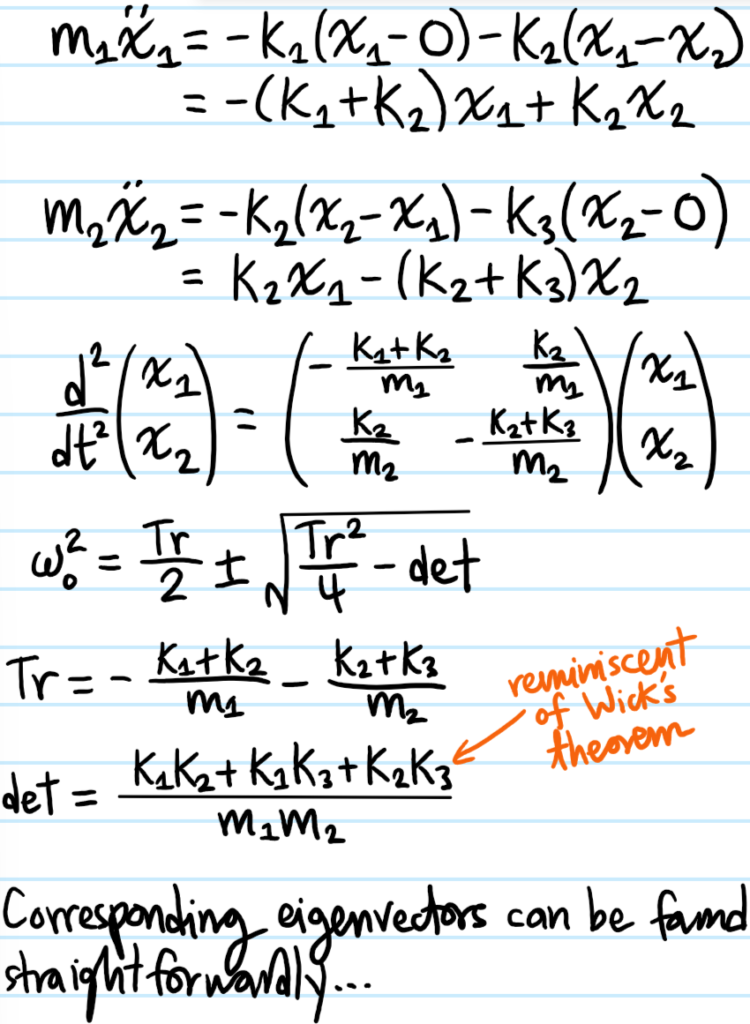 m₁ẍ₁ = -k₁(x₁-0)-k₂(x₁-x₂)
= -(k₁+k₂)x₁ + k₂x₂
m₂ẍ₂ = -k₂(x₂-x₁)-k₃(x₂-0)
= k₂x₁-(k₂+k₃)x₂
d²/dt² (x₁ x₂) = (-(k₁+k₂)/m₁ k₂/m₁ k₂/m₂ -(k₂+k₃)/m₂)(x₁ x₂)
ω₀² = Tr/2 ± √(Tr²/4 - det)
Tr = -(k₁+k₂)/m₁ - (k₂+k₃)/m₂
reminiscent
of Wick's
theorem
det = (k₁k₂+k₁k₃+k₂k₃)/(m₁m₂)
Corresponding eigenvectors can be found
straightforwardly...